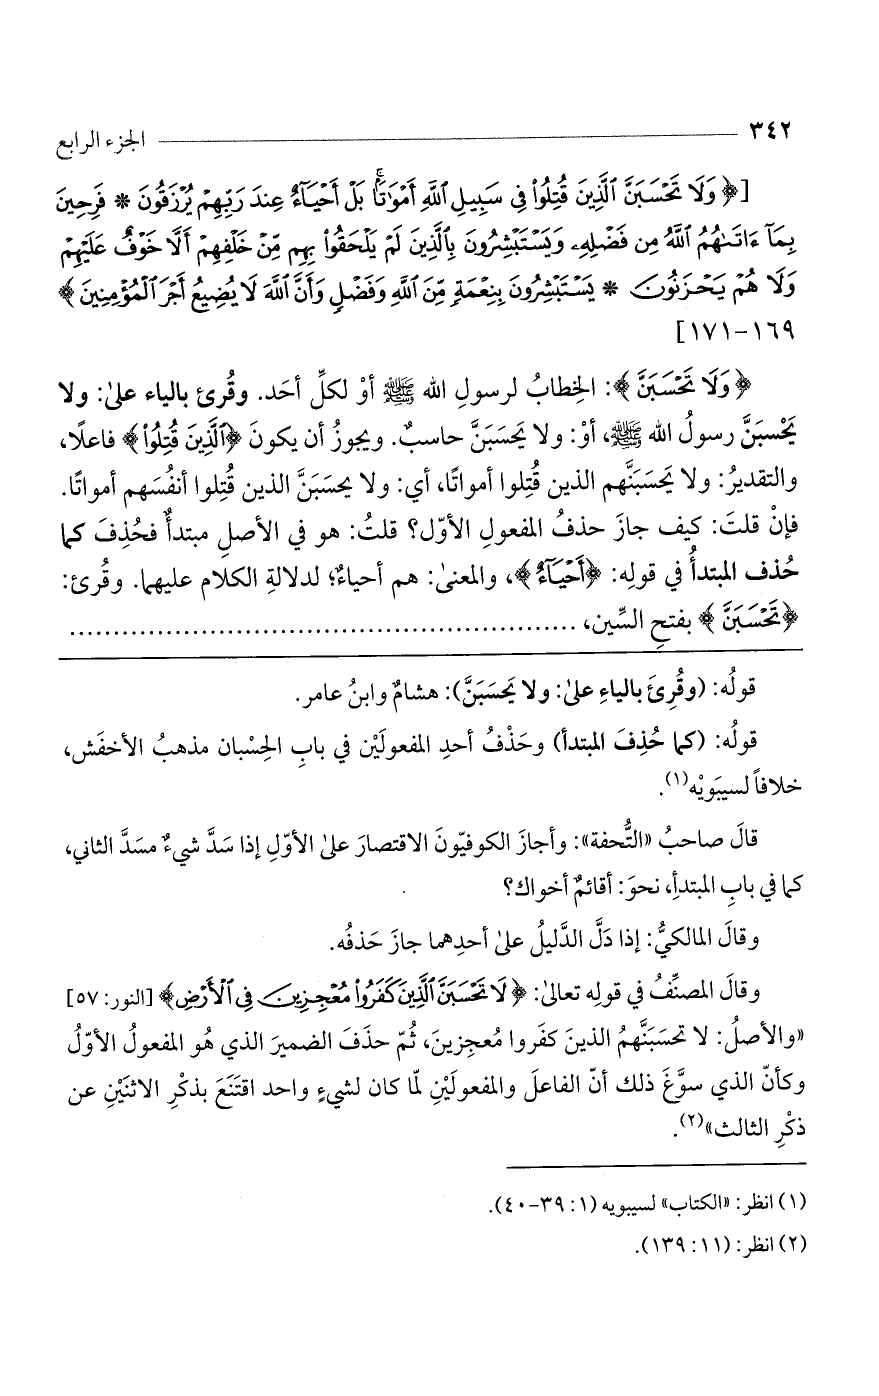 ٣٤٢ الجزء الرابع
[﴿وَلَا تَحْسَبَنَّ ٱلَّذِينَ قُتِلُوا۟ فِى سَبِيلِ ٱللَّهِ أَمْوَٰتًۢا بَلْ أَحْيَآءٌ عِندَ رَبِّهِمْ يُرْزَقُونَ * فَرِحِينَ
بِمَآ ءَاتَىٰهُمُ ٱللَّهُ مِن فَضْلِهِۦ وَيَسْتَبْشِرُونَ بِٱلَّذِينَ لَمْ يَلْحَقُوا۟ بِهِم مِّنْ خَلْفِهِمْ أَلَّا خَوْفٌ عَلَيْهِمْ
وَلَا هُمْ يَحْزَنُونَ * يَسْتَبْشِرُونَ بِنِعْمَةٍ مِّنَ ٱللَّهِ وَفَضْلٍ وَأَنَّ ٱللَّهَ لَا يُضِيعُ أَجْرَ ٱلْمُؤْمِنِينَ﴾
١٦٩-١٧١]
﴿وَلَا تَحْسَبَنَّ﴾: الخِطابُ لرسولِ الله ﷺ أوْ لكلِّ أحَد. وقُرئ بالياء علىٰ: ولا
يَحْسبَنَّ رسولُ الله ﷺ، أوْ: ولا يَحسَبَنَّ حاسبٌ. ويجوزُ أن يكونَ ﴿ٱلَّذِينَ قُتِلُوا۟﴾ فاعلًا،
والتقديرُ: ولا يَحسَبَنَّهم الذين قُتِلوا أمواتًا، أي: ولا يحسَبَنَّ الذين قُتِلوا أنفُسَهم أمواتًا.
فإنْ قلتَ: كيف جازَ حذفُ المفعولِ الأوّل؟ قلتُ: هو في الأصلِ مبتدأٌ فحُذِفَ كما
حُذف المبتدأُ في قولِه: ﴿أَحْيَآءٌ﴾، والمعنىٰ: هم أحياءٌ؛ لدلالةِ الكلام عليهما. وقُرئ:
﴿تَحْسَبَنَّ﴾ بفتحِ السِّين، ..........................................................
قولُه: (وقُرِئَ بالياءِ علىٰ: ولا يَحسَبَنَّ): هشامٌ وابنُ عامر.
قولُه: (كما حُذِفَ المبتدأ) وحَذْفُ أحدِ المفعولَيْن في بابِ الحِسْبان مذهبُ الأخفَش،
خلافاً لسيبَويْه(١).
قالَ صاحبُ «التُّحفة»: وأجازَ الكوفيّونَ الاقتصارَ علىٰ الأوّلِ إذا سَدَّ شيءٌ مسَدَّ الثاني،
كما في بابِ المبتدأِ، نحوَ: أقائمٌ أخواك؟
وقالَ المالكيُّ: إذا دَلَّ الدَّليلُ علىٰ أحدِهما جازَ حَذفُه.
وقالَ المصنِّفُ في قولِه تعالىٰ: ﴿لَا تَحْسَبَنَّ ٱلَّذِينَ كَفَرُوا۟ مُعْجِزِينَ فِى ٱلْأَرْضِ﴾ [النور: ٥٧]
«والأصلُ: لا تحسَبَنَّهمُ الذينَ كفَروا مُعجزينَ، ثُمّ حذَفَ الضميرَ الذي هُو المفعولُ الأوّلُ
وكأنّ الذي سوَّغَ ذلك أنّ الفاعلَ والمفعولَيْنِ لمّا كان لشيءٍ واحد اقتَنَعَ بذكْرِ الاثنَيْنِ عن
ذكْرِ الثالث»(٢).
(١) انظر: «الكتاب» لسيبويه (١: ٣٩-٤٠).
(٢) انظر: (١١: ١٣٩).